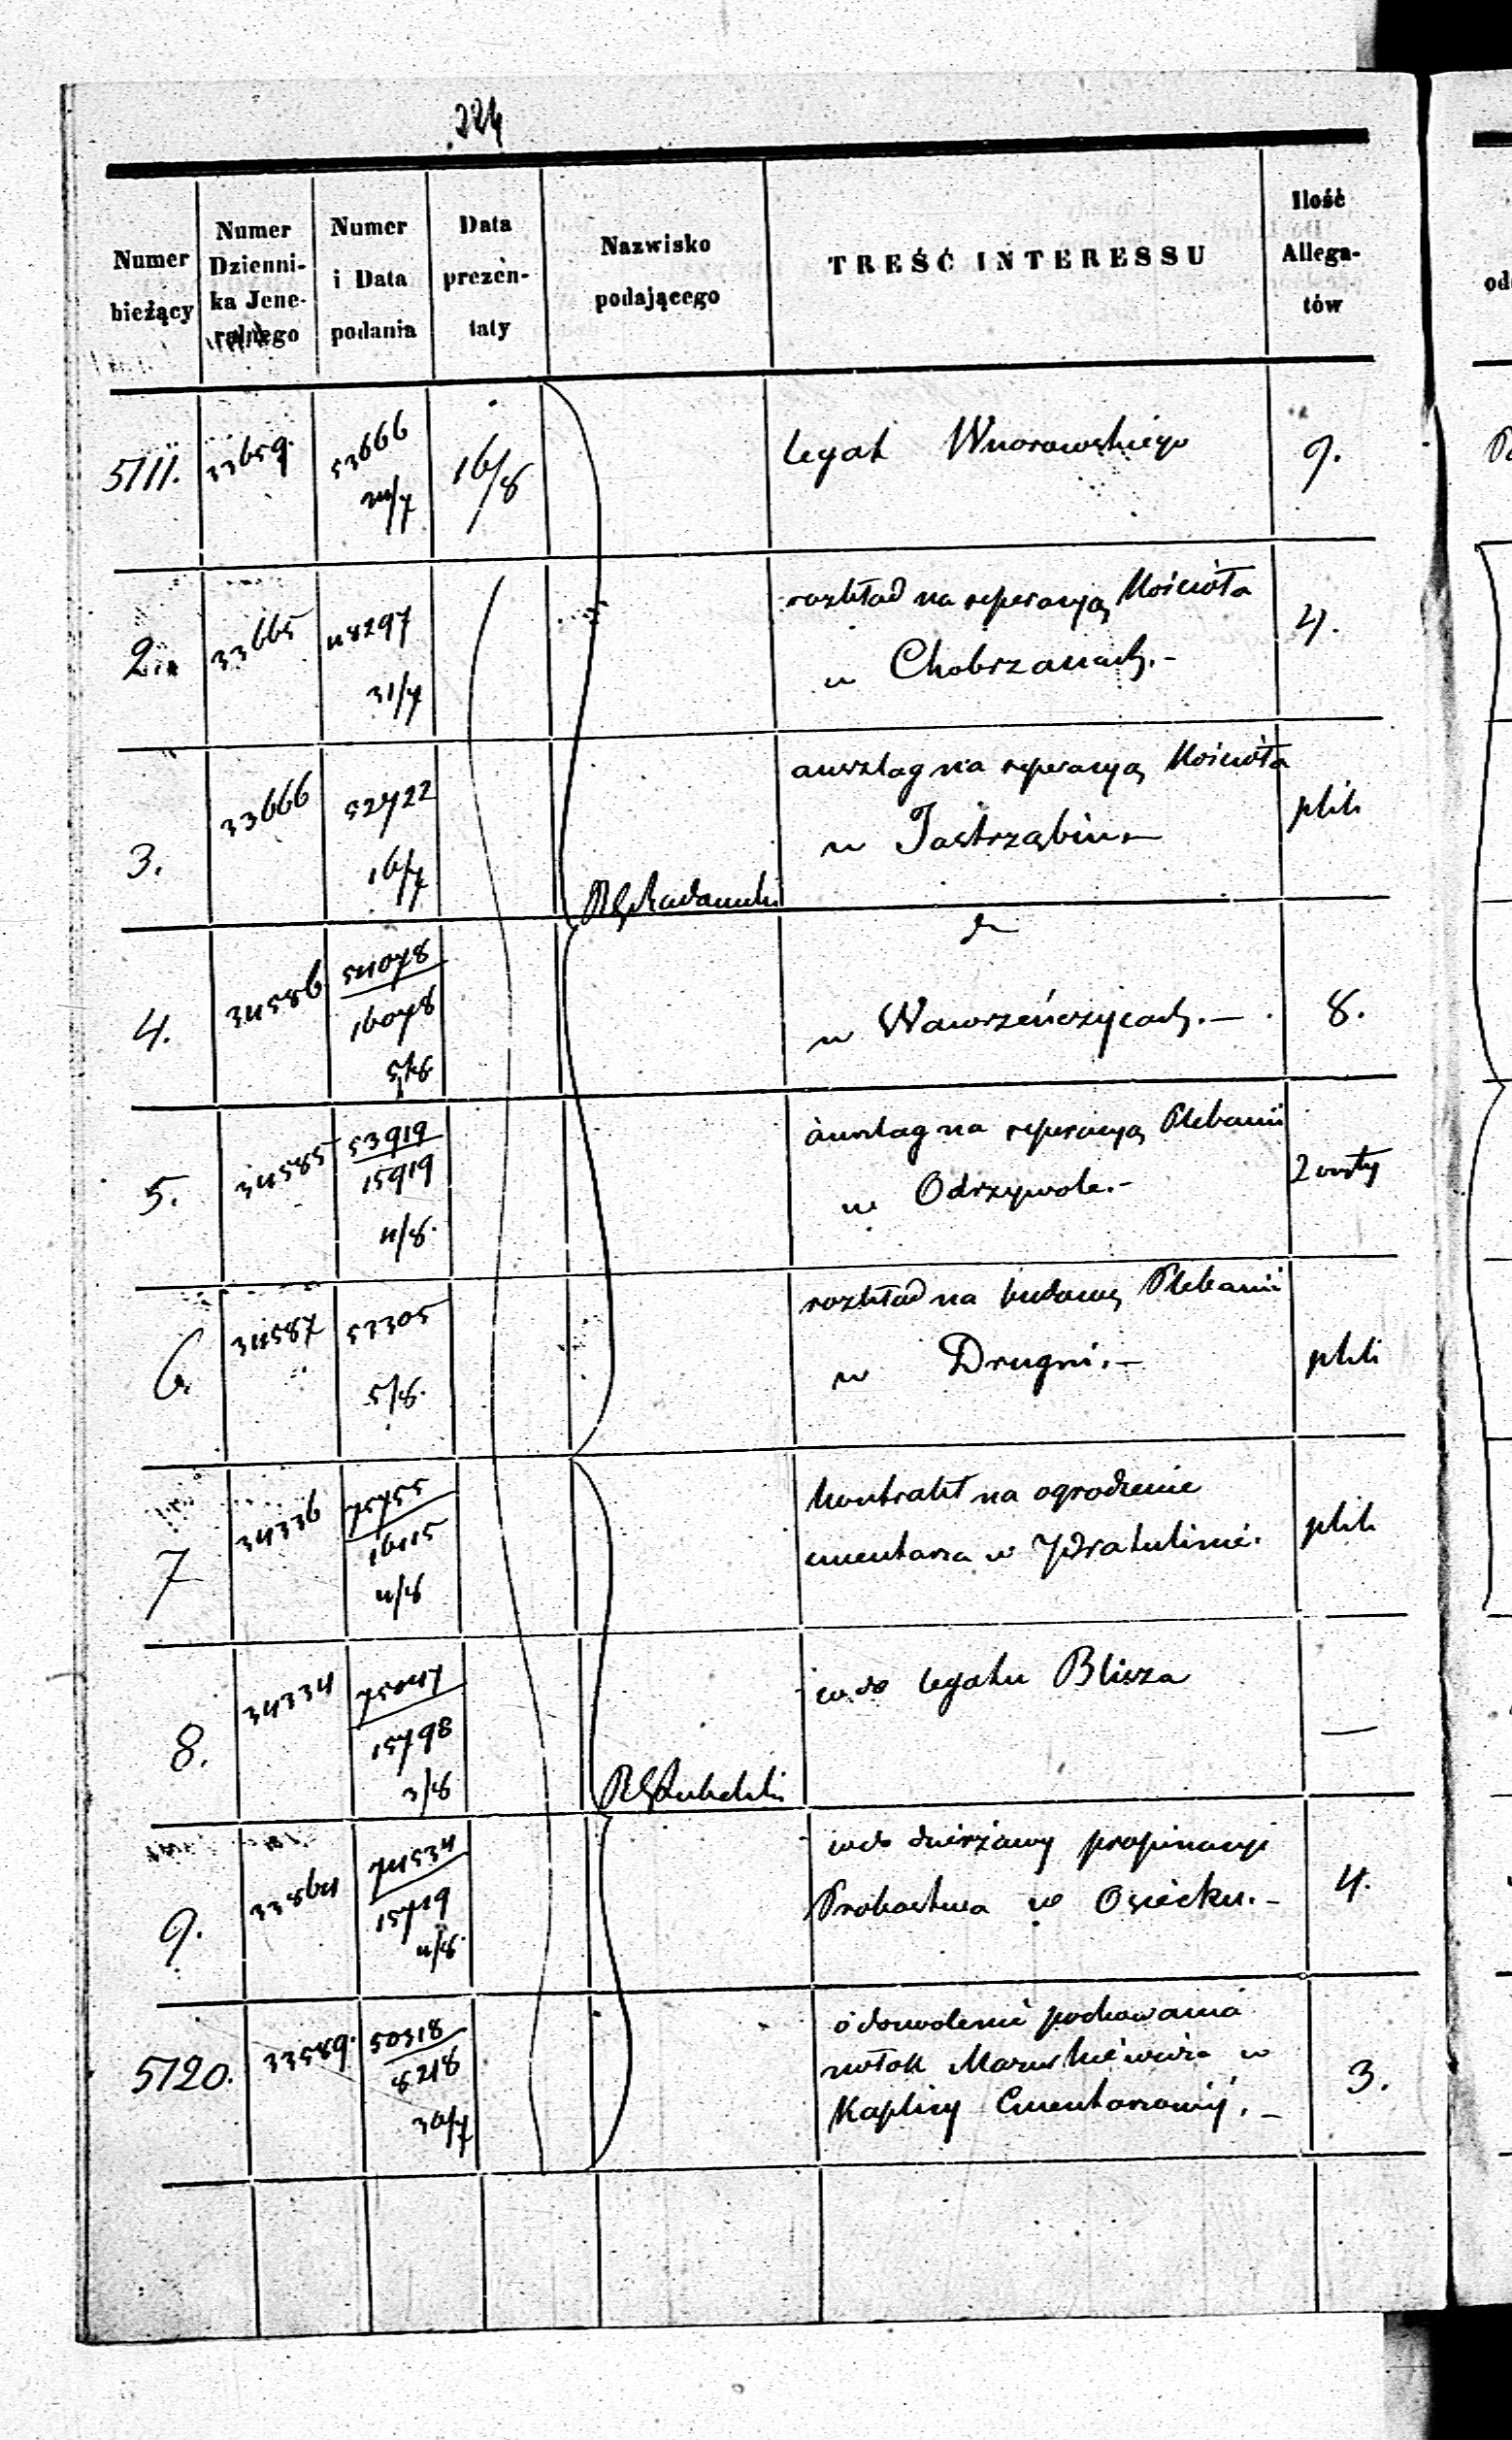 324
Numer bieżący
Numer Dzienni-ka Jene-ralnego
Numer i Data podania
Data prezen-taty
Nazwisko podającego
TREŚĆ INTERESSU
Ilość Allega-tów
5111. 33659. 53666 16/8 legat Wnorowskiego 9.
2. 33665 48297 31/7 rozkład na reperacyą Kościoła 4.
w Chobrzanach.-
3. 33666 52722 16/7 anszlag na reperacyą Kościoła plik
w Jastrzębiu.-
RG Radomski
4. 34586 54078 16078 5/8 w Wawrzeńczycach.- 8.
5. 34585 53919 15919 4/8. anszlag na reperacyą Plebanii
w Odrzywole.-
6. 34587 53305 5/8. rozkład na budowę Plebanii plik
w Drugni.-
7 34336 75755 4/8 kontrakt na ogrodzenie plik
cmentarza w Pratulinie.
8. 34334 15798 3/8 co do legatu Blisza —
RG Lubelski
9. 33864 74534 15719 4/8. co do dzierżawy propinacyi 4.
Probostwa w Osiecku.-
5120. 33589. 50318 8218 30/7 o dozwolenie pochowania 3.
zwłok w
Kaplicy Cmentarnéj.-